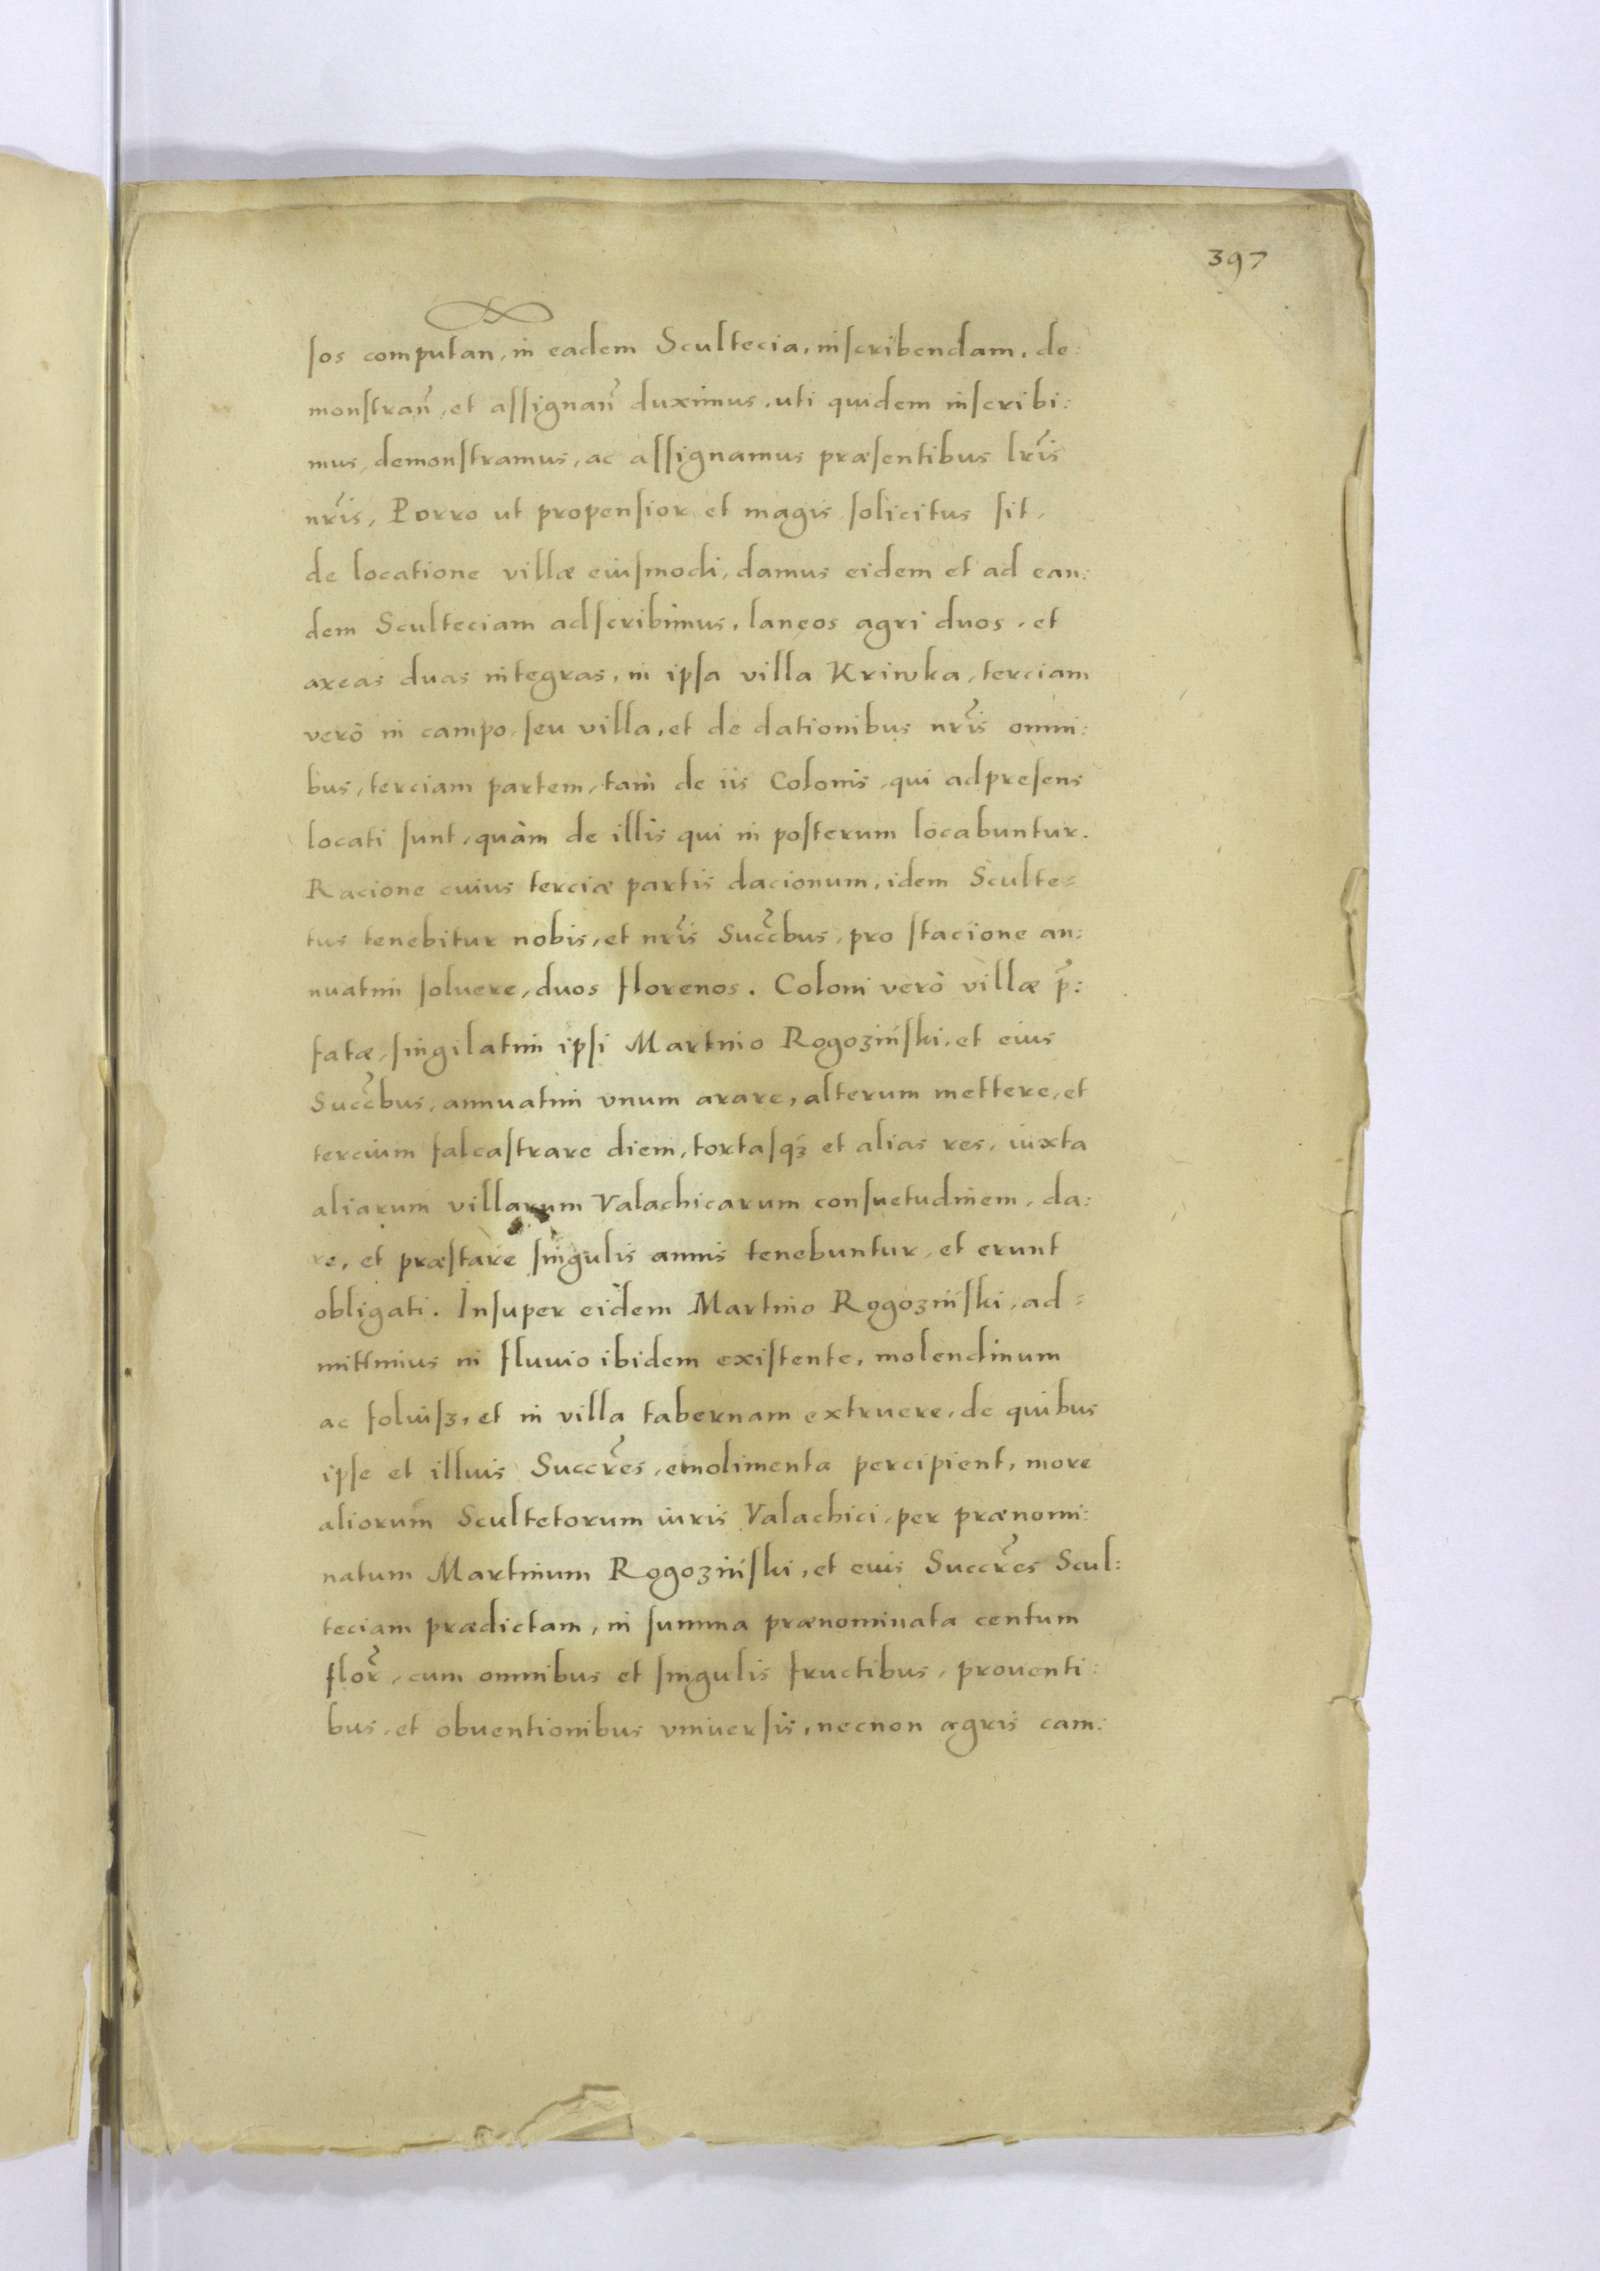 397
ſos computan, in eadem Scultecia, inſcribendam, de:
monſtrañ, et aſſignañ duximus, uti quidem inſcribi:
mus, demonſtramus, ac aſſignamus præſentibus lr̃is
nr̃is, Porro ut propenſior et magis ſolicitus ſit,
de locatione villæ eiuſmodi, damus eidem et ad ean:
dem Sculteciam adſcribimus, laneos agri duos, et
areas duas integras, in ipſa villa Kriwka, terciam
verò in campo, ſeu villa, et de dationibus nr̃is omni:
bus, terciam partem, tam de iis Colonis, qui adpreſens
locati ſunt, quàm de illis qui in poſterum locabuntur.
Racione cuius terciæ partis dacionum, idem Sculte=
tus tenebitur nobis, et nr̃is Succ̃bus, pro ſtacione an:
nuatim ſoluere, duos florenos. Coloni verò villæ p̃:
fatæ, ſingilatim ipſi Martino Rogoziński, et eius
Succ̃bus, annuatim vnum arare, alterum mettere, et
tercium falcaſtrare diem, tortaſqʒ et alias res, iuxta
aliarum villarum Valachicarum conſuetudinem, da:
re, et præſtare ſingulis annis tenebuntur, et erunt
obligati. Inſuper eidem Martino Rogoziński, ad=
mittimus in fluuio ibidem exiſtente, molendinum
ac foluſʒ, et in villa tabernam extruere, de quibus
ipſe et illius Succr̃es, emolimenta percipient, more
aliorum Scultetorum iuris Valachici, per prænomi:
natum Martinum Rogoziński, et eius Succr̃es Scul:
teciam prædictam, in ſumma prænominata centum
flor̃, cum omnibus et ſingulis fructibus, prouenti:
bus, et obuentionibus vniuerſis, necnon agris cam: